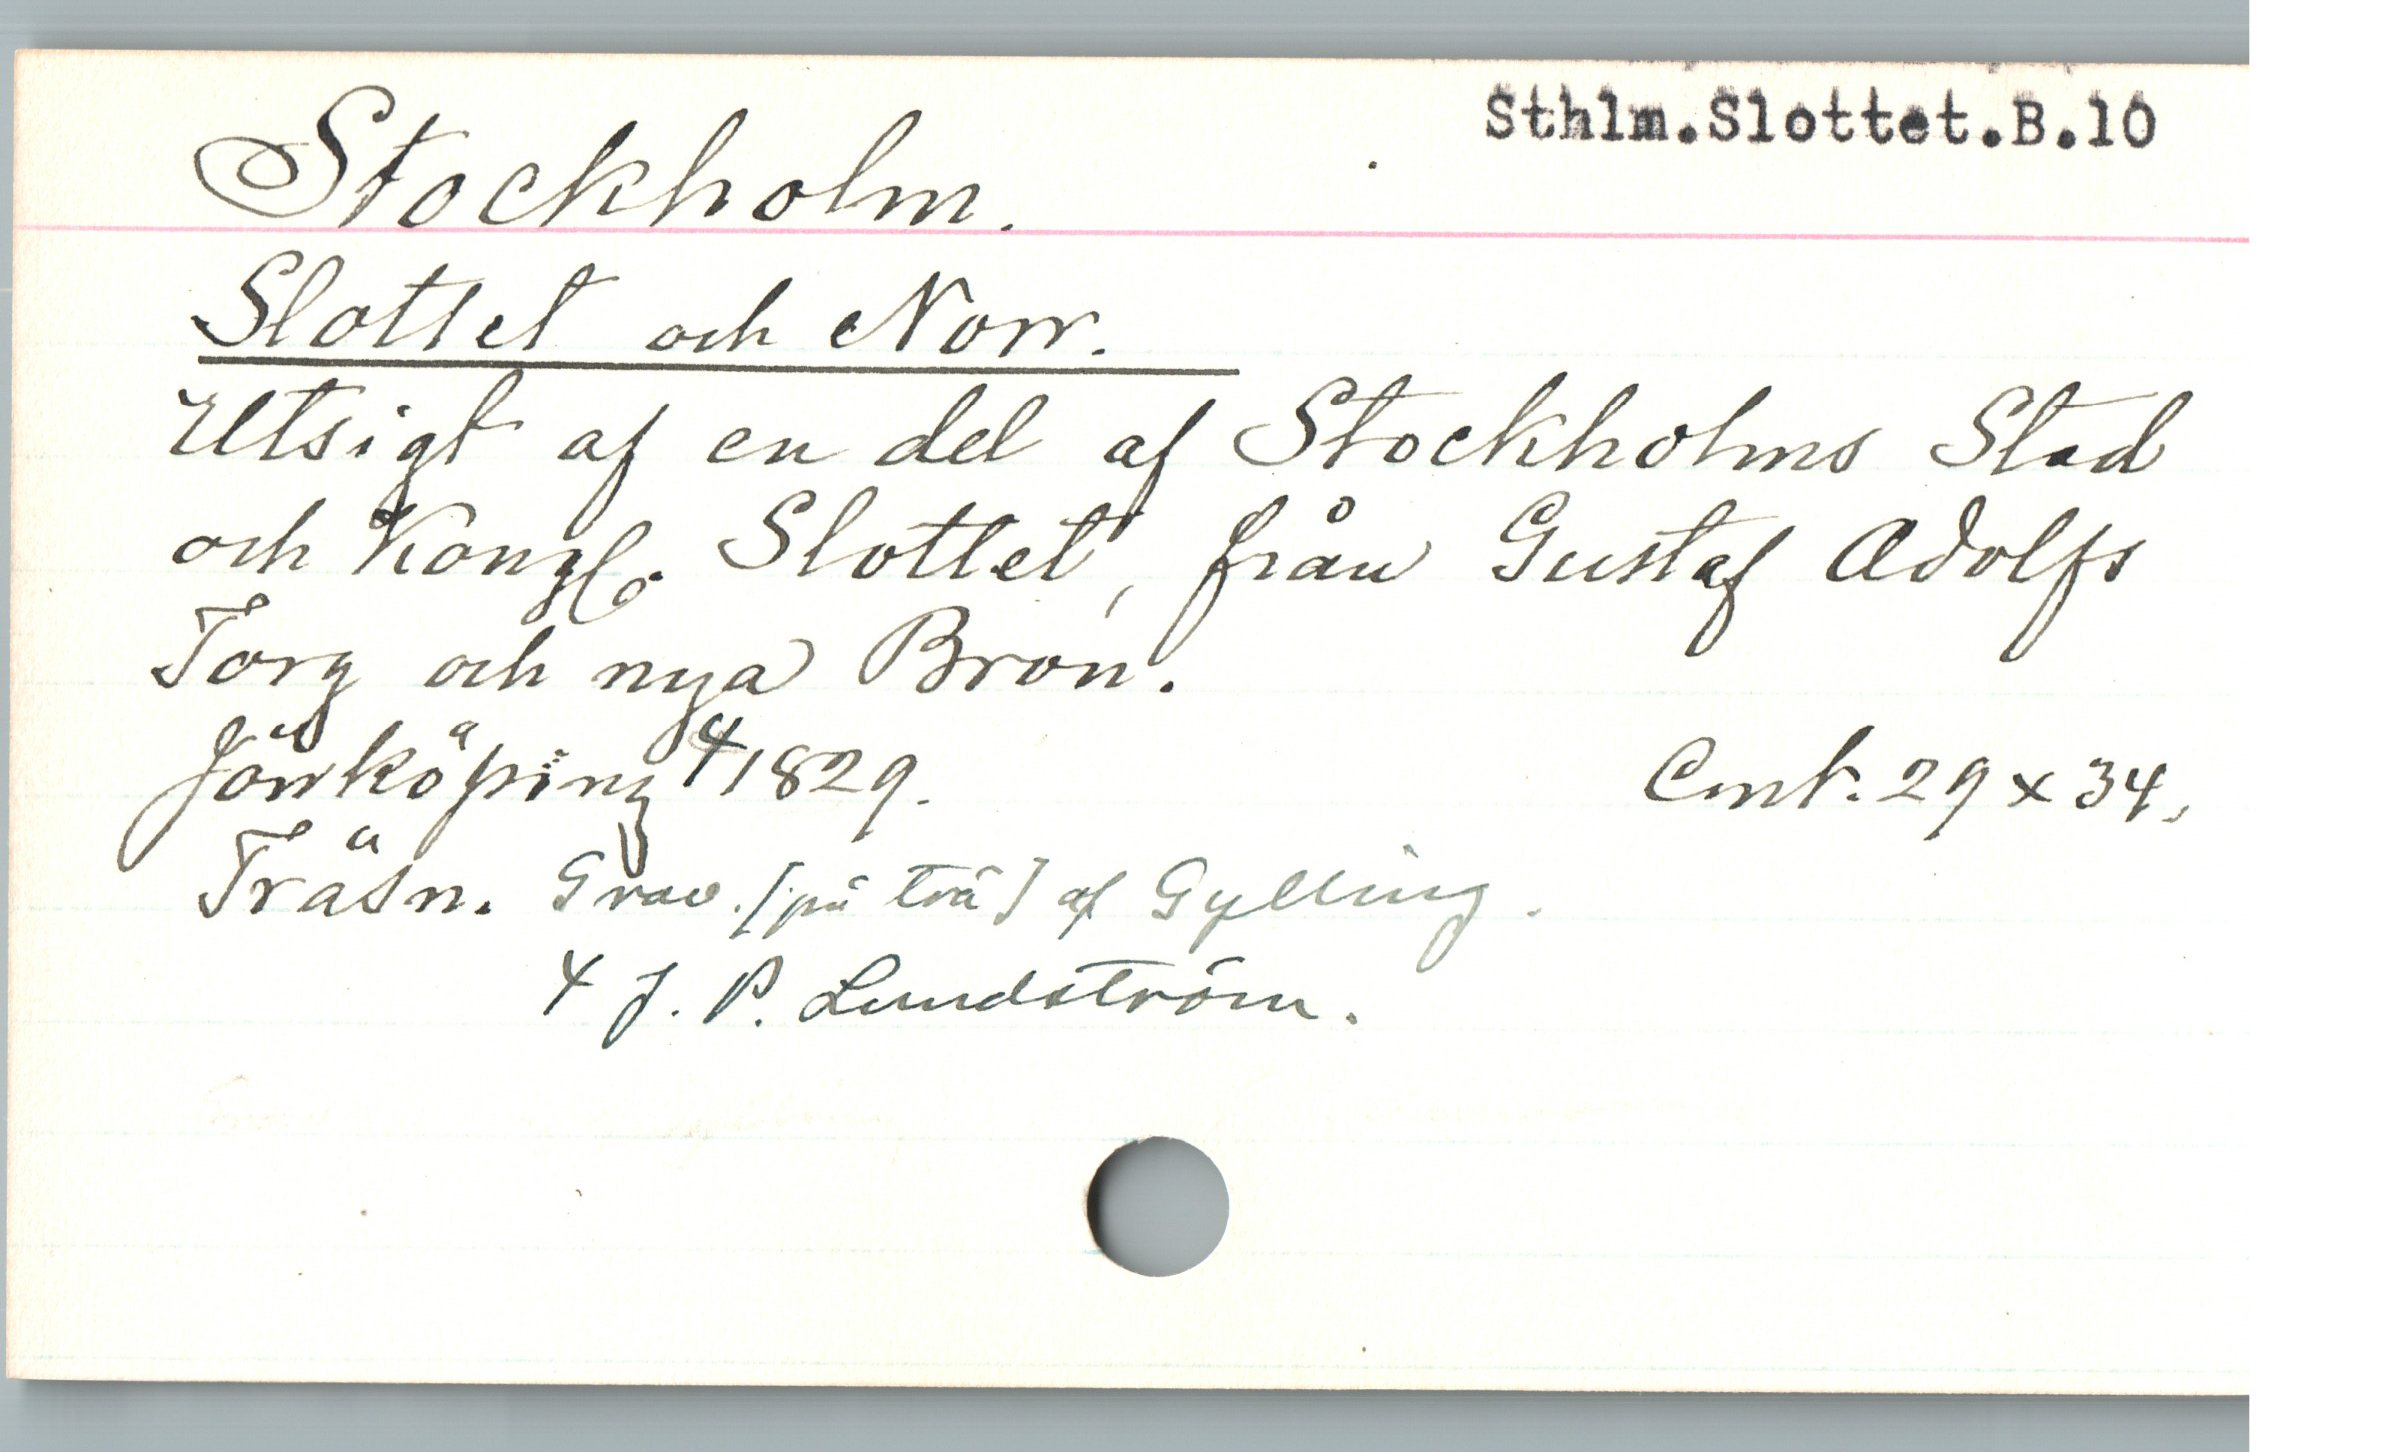 Sthlm.Slottet.B.10
Stockholm.
Slottet och Norr.
Utsigt af en del af Stockholms Stad
och Kongl. Slottet, från Gustaf Adolfs
Torg och nya Bron.
Jönköping + 1829. Cmt. 29 x 34.
Träsn. Grav. [på trä] af Gylling.
+ J. P. Lundström.